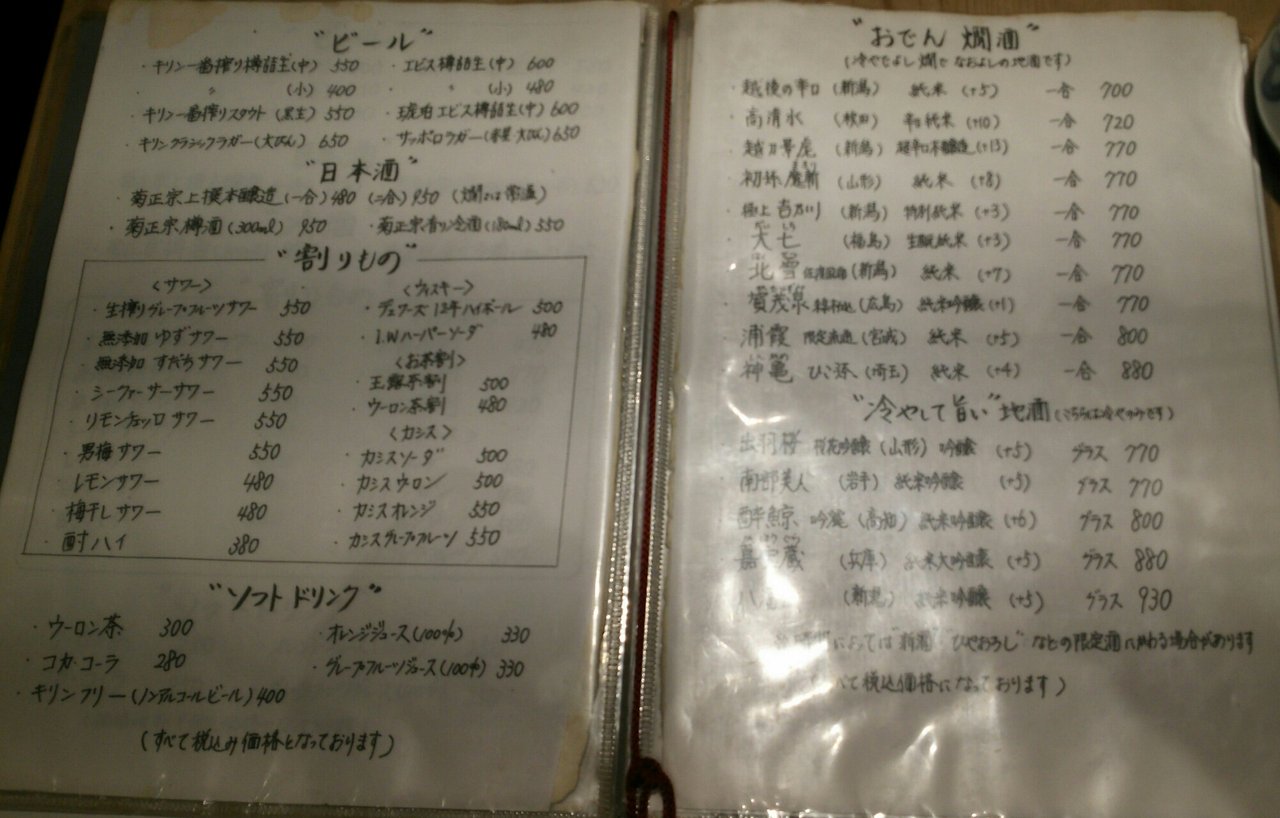 "ビール"
・キリン一番搾り樽詰生(中) 550 ・エビス樽詰生(中) 600
〃 (小) 400 〃 (小) 480
・キリン一番搾りスタウト(黒生) 550 ・琥珀エビス樽詰生(中) 600
・キリンクラシックラガー(大びん) 650 ・サッポロラガー(赤星 大びん) 650
"日本酒"
・菊正宗上撰本醸造(一合) 480 (二合) 950 (燗又は常温)
・菊正宗樽酒(300ml) 950 ・菊正宗香り冷酒(180ml) 550
"割りもの"
<サワー> <ウィスキー>
・生搾りグレープフルーツサワー 550 ・デュワーズ12年ハイボール 500
・無添加ゆずサワー 550 ・I.Wハーパーソーダ 480
・無添加すだちサワー 550 <お茶割>
・シークァーサーサワー 550 ・玉露茶割 500
・リモンチェッロサワー 550 ・ウーロン茶割 480
・男梅サワー 550 <カシス>
・レモンサワー 480 ・カシスソーダ 500
・梅干しサワー 480 ・カシスウーロン 500
・酎ハイ 380 ・カシスオレンジ 550
・カシスグレープフルーツ 550
"ソフトドリンク"
・ウーロン茶 300 ・オレンジジュース(100%) 330
・コカ・コーラ 280 ・グレープフルーツジュース(100%) 330
・キリンフリー(ノンアルコールビール) 400
(すべて税込み価格となっております)
"おでん 燗酒"
(冷やでよし燗でなおよしの地酒です)
・越後の辛口 (新潟) 純米 (+5) 一合 700
・高清水 (秋田) 辛口純米 (+10) 一合 720
・越乃景虎 (新潟) 超辛口本醸造 (+13) 一合 770
・初孫 魔斬 (山形) 純米 (+8) 一合 770
・極上吉乃川 (新潟) 特別純米 (+3) 一合 770
・大七 (福島) 生酛純米 (+3) 一合 770
・北雪 (新潟) 純米 (+7) 一合 770
・賀茂泉 (広島) 純米吟醸 (+1) 一合 770
・浦霞 限定流通 (宮城) 純米 (+5) 一合 800
・神亀 ひこ孫 (埼玉) 純米 (+4) 一合 880
"冷やして旨い"地酒(こちらは冷やのみです)
・出羽桜 桜花吟醸 (山形) 吟醸 (+5) グラス 770
・南部美人 (岩手) 純米吟醸 (+5) グラス 770
・酔鯨 吟麗 (高知) 純米吟醸 (+6) グラス 800
・嘉宮蔵 (兵庫) 純米大吟醸 (+5) グラス 880
(新潟) 純米吟醸 (+5) グラス 930
によっては"新酒""ひやおろし"などの限定酒に変わる場合があります
べて税込価格になっております)